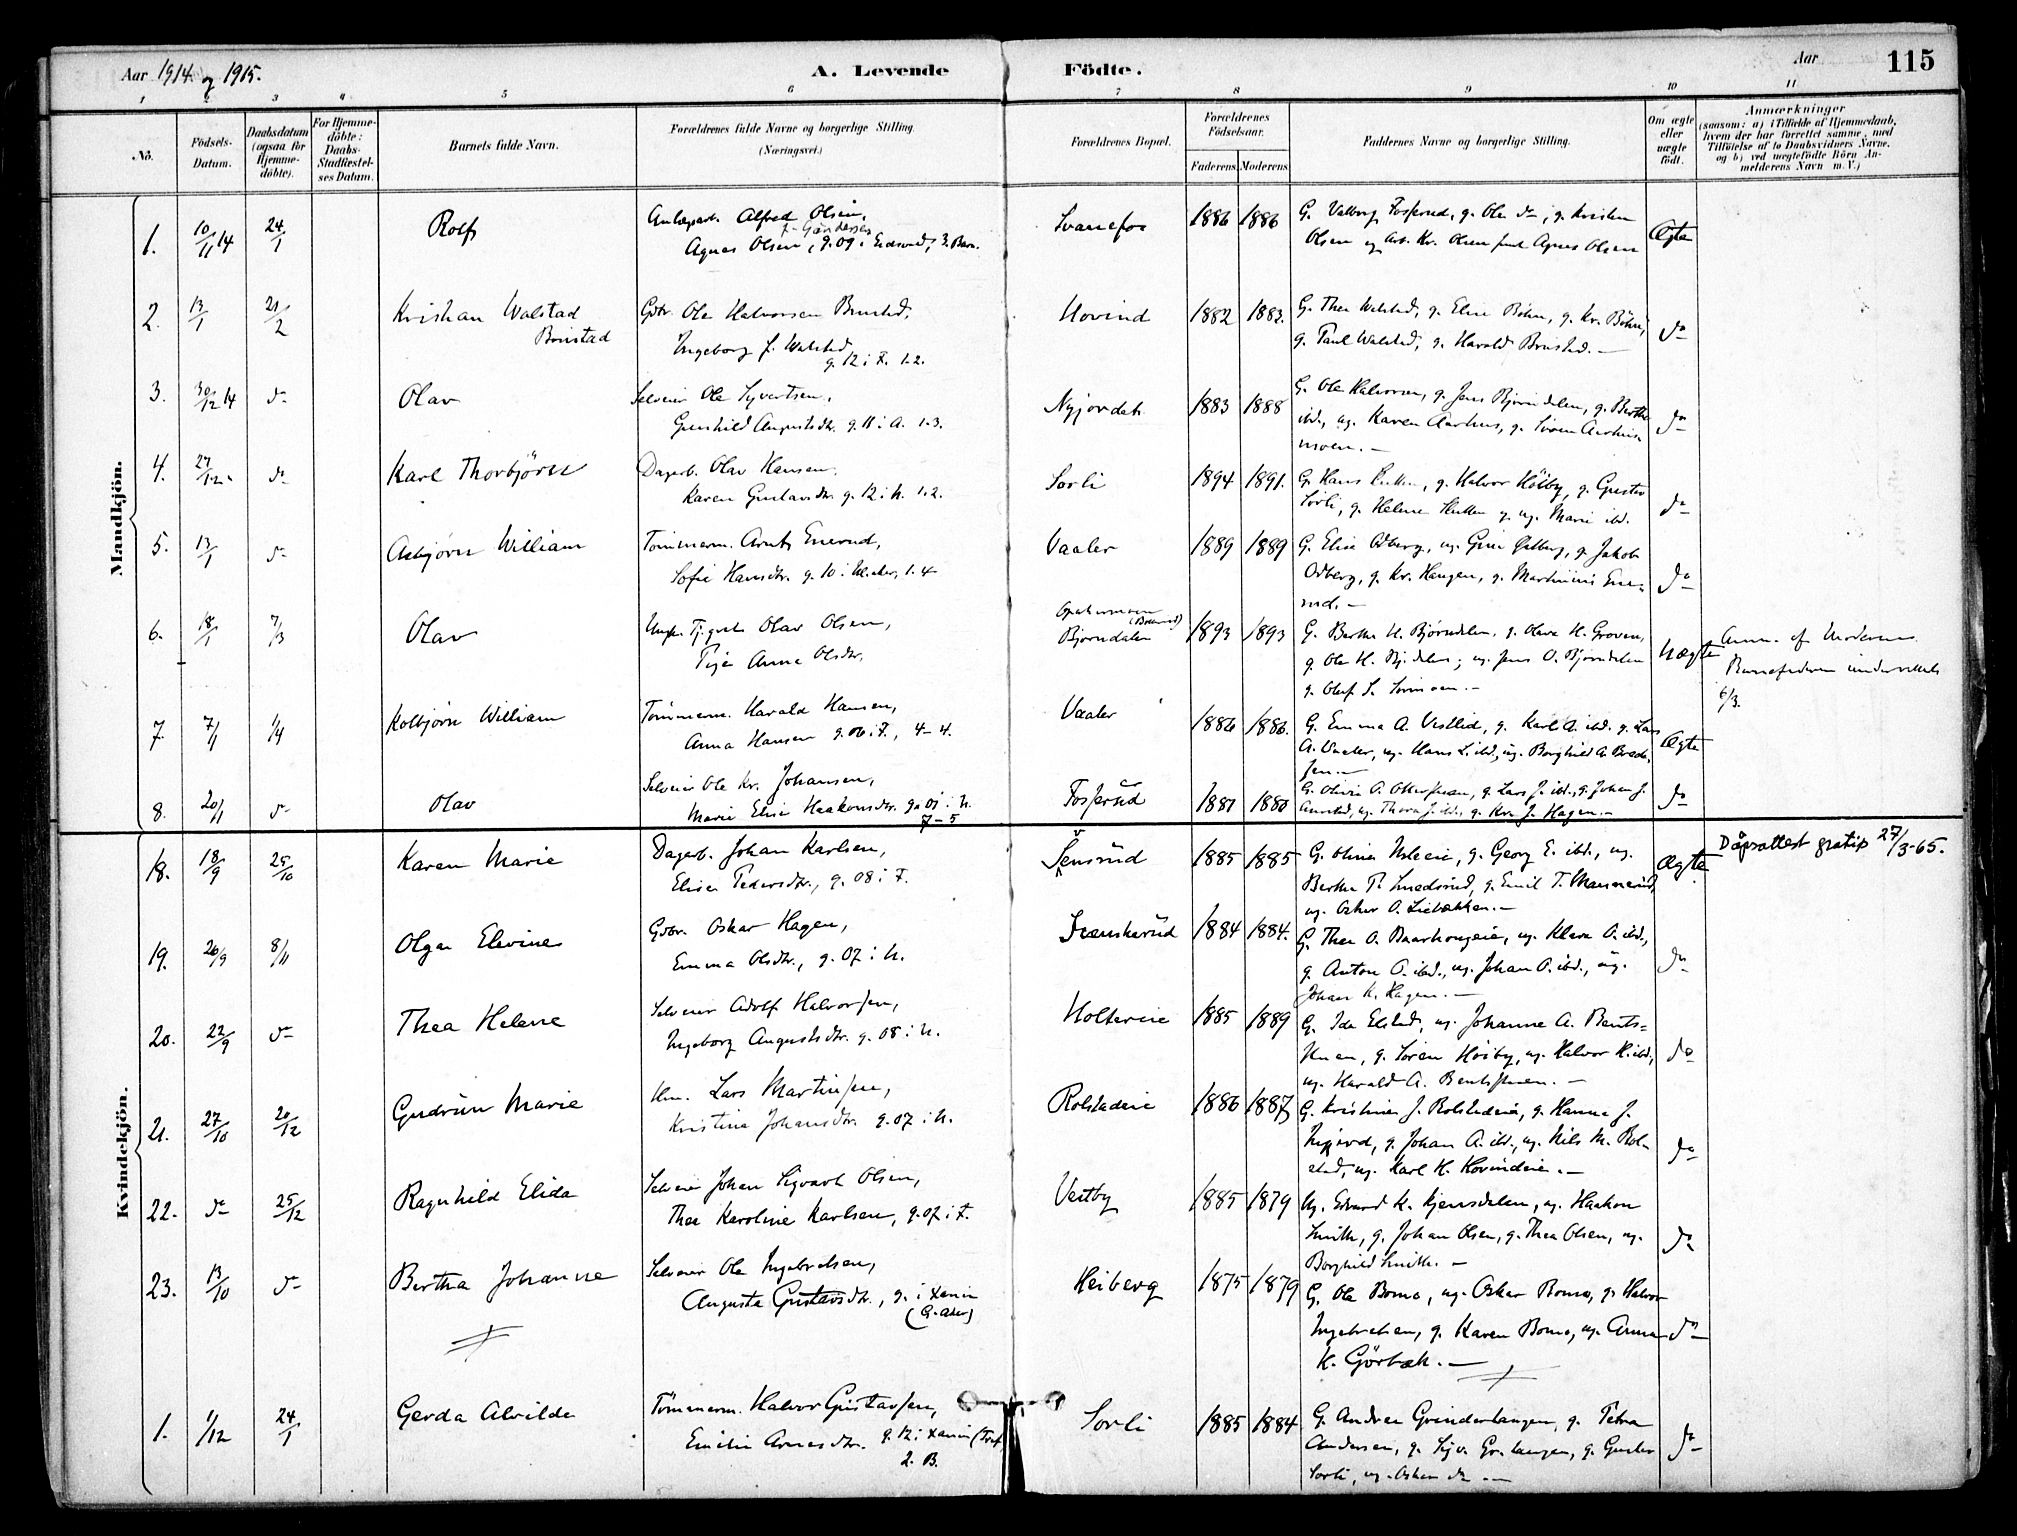 Aar 1914 og 1915.
A. Levende Födte.
Aar
115
1 2 3 4 5 6 7 8 9 10 11
No.
Födsels-Datum.
Daabsdatum (ogsaa for Hjemme-döbte).
For Hjemme-döbte: Daabs-Stadfæstel-ses Datum.
Barnets fulde Navn.
Forældrenes fulde Navne og borgerlige Stilling.
(Næringsvei.)
Forældrenes Bopæl.
Forældrenes Födselsaar.
Faderens. Moderens.
Faddernes Navne og borgerlige Stilling.
Om ægte eller uægte födt.
Anmærkninger
(saasom: a) i Tilfælde af Hjemmedaab,
hvem der har forrettet samme, med
Tilföielse af to Daabsvidners Navne,
og b) ved uægtefödte Börn An-
melderens Navn m. V.)
Mandkjön.
1. 10/11 14 24/1 Rolf Alfred Olsen, Svanefos 1886 1886 G. Valborg Fosserud, g. Ole do, g. Kristen Ægte
Agnes Olsen, g. 09 i Eidsvold, 3. Barn. Olsen ug. Arb. Kr. Olsen samt Agnes Olsen
2. 13/1 21/2 Kristian Walstad Gbr. Ole Halvorsen Brustad, Hovind 1882 1883. G. Thea Walstad, g. Elise Böhn, g. Kr. Böhn, do
Brustad Ingeborg f. Walstad g. Paul Walstad, g. Harald Brustad. —
g. 12 i F. 1.2.
3. 30/12 14 do Olav Selveier Ole Syvertsen, Nyjordet 1883 1888 G. Ole Halvorsen, g. Jens Björndalen, g. Berthe do
Gunhild Augustsdtr. g. 11 i A. 1.3. ibd., ug. Karen Aarhus, g. Sven Aarhus-
moen. —
4. 27/12. do Karl Thorbjörn Dagarb. Olav Hansen, Sorli 1894 1891. G. Hans, g. Halvor Hölby, g. Gustav do
Karen Gustavsdtr. g. 12 i H. 1.2. Sörli, g. Helene ug. Marie ibd.
5. 13/1 do Asbjörn William Tömmerm. Arnt Enerud, Vaaler 1889 1889 G. Elise Odberg, ug. Gina, g. Jakob do
Sofie Hansdtr. g. 10 i, 1.4 Odberg, g. Kr. Haugen, g. Martinius Ene-
rud. —
6. 18/1 7/3 Olav Olav Olsen, Björndalen 1893 1893 G. Berthe H. Björndalen, g. Olava H. Groven, Uægte Anm. af Moderen
Pige Anna Olsdtr. g. Ole H. Bj.dalen, ug. Jens O. Björndalen Barnefaderen underrettet
g. Oluf S. 6/3.
7. 7/1 1/4 Kolbjörn William Tömmerm. Harald Hansen, Vaaler 1886 1886. G. Emma A. Vestlid, g. Karl A. ibd. g. Lars Ægte
Anna Hansen g. 06 i F., 4-4. A. Vaaler, ug. Hans L. ibd., ug. Borghild A. Brede-
sen. —
8. 20/1 do Olav Selveier Ole Kr. Johansen, Fosserud 1881 1880 G. Olivia O., g. Lars J. ibd., g. Johan J. do
Marie Elise Haakonsdtr. g. 01 i H. ug. Thora J. ibd., g. Kr. J. Hagen. —
7-5
Kvindekjön.
18. 18/9 25/10 Karen Marie Dagarb. Johan Karlsen, Sensrud 1885 1885 G. Olivia, g. Georg E. ibd., ug. Ægte Dåpsattest gratis 27/3-65.
Elise Pedersdtr., g. 08 i F. Berthe P. Smedsrud, g. Emil T. Mannerud,
ug. Oskar O. Liebakken. —
19. 20/9 8/11 Olga Elevine Gbr. Oskar Hagen, Svenskerud 1884 1884. G. Thea O. Baarhougeie, ug. Klara O. ibd., do
Emma Olsdtr., g. 07 i H. g. Anton O. ibd., ug. Johan O. ibd., ug.
Johan K. Hagen. —
20. 22/9 do Thea Helene Selveier Adolf Halvorsen, Holtereie 1885 1889 G. Ida Elstad, ug. Johanne A. Bents- do
Ingeborg Augustsdtr. g. 08 i H. tuen, g. Sören Höiby, ug. Halvor H. ibd.,
ug. Harald A. Bentstuen. —
21. 27/10 20/12 Gudrun Marie Hm. Lars Martinsen, Rolstadeie 1886 1887 G. Kristine J. Rolstadeie, g. Hanna J. do
Kristine Johansdtr. g. 07 i H. g. Johan A. ibd., ug. Nils M. Rol-
stad, ug. Karl H. Hovindeie. —
22. do 25/12 Ragnhild Elida Selveier Johan Sigvart Olsen, Vestby 1885 1879 Ug. Edvard K. Kjensdalen, ug. Haakon do
Thea Karoline Karlsen, g. 07 i F. Smith, g. Johan Olsen, g. Thea Olsen, ug.
Borghild Smith. —
23. 13/10 do Bertha Johanne Selveier Ole Ingebretsen, Heiberg 1875 1879 G. Ole Bomo, ug. Oskar Bomo, g. Halvor do
Augusta Gustavsdtr., g. i Xania Ingebretsen, g. Karen Bomo, ug. Anna
(G. Aker) K. Görbæk. —
1. 1/12 24/1 Gerda Alvilde Tömmerm. Halvor Gustavsen, Sorli 1885 1884 G. Andrea Grinderhaugen, g. Petra do
Emilie Arnesdtr. g. 12 i Xania Andersen, g. Sigv. Gr.haugen, g. Gustav
2. B. Sorli, ug. Oskar do —